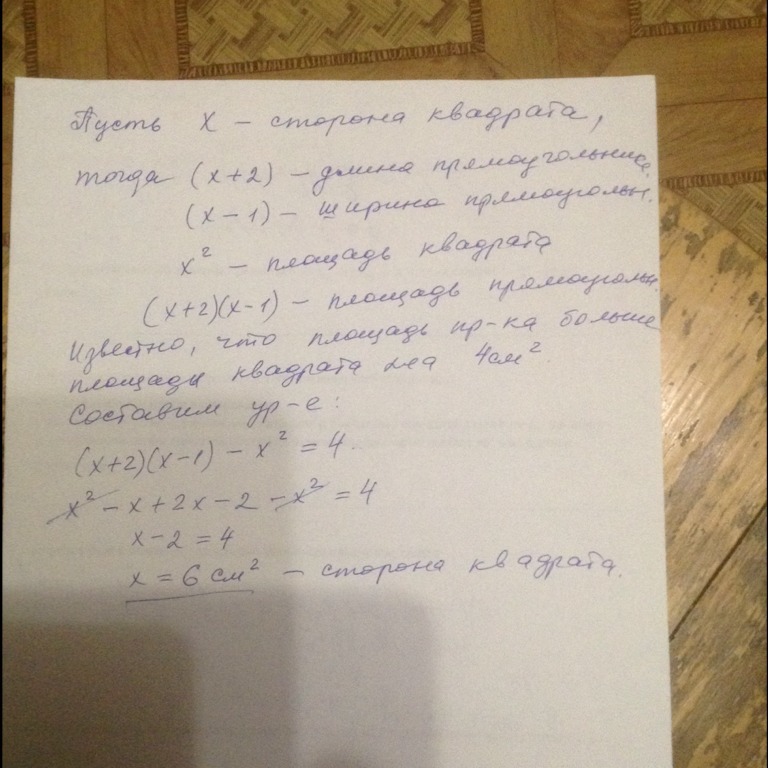 Пусть x – сторона квадрата,
тогда (x+2) – длина прямоугольника.
(x–1) – ширина прямоугольн.
x² – площадь квадрата
(x+2)(x-1) – площадь прямоугольн.
Известно, что площадь пр-ка больше
площади квадрата на 4см²
Составим ур-е:
(x+2)(x-1) – x² = 4.
x² – x + 2x – 2 – x² = 4
x-2 = 4
x = 6 см² – сторона квадрата.